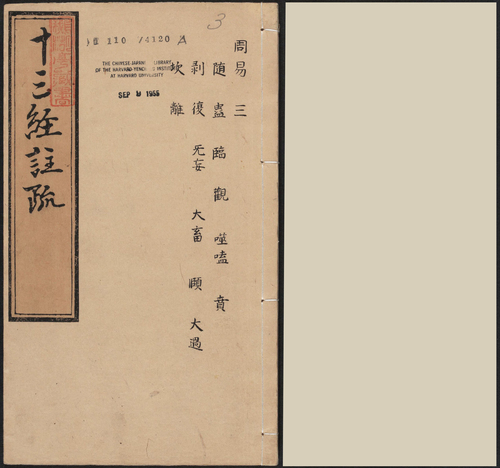 周易 三
随 蠱 臨 觀 噬嗑 賁
剥 復 无妄 大畜 頤 大過
坎 離
十三經註疏
3
110 /4120
THE CHINESE-JAPANESE LIBRARY
OF THE HARVARD-YENCHING INSTITUTE
AT HARVARD UNIVERSITY
SEP 9 1955